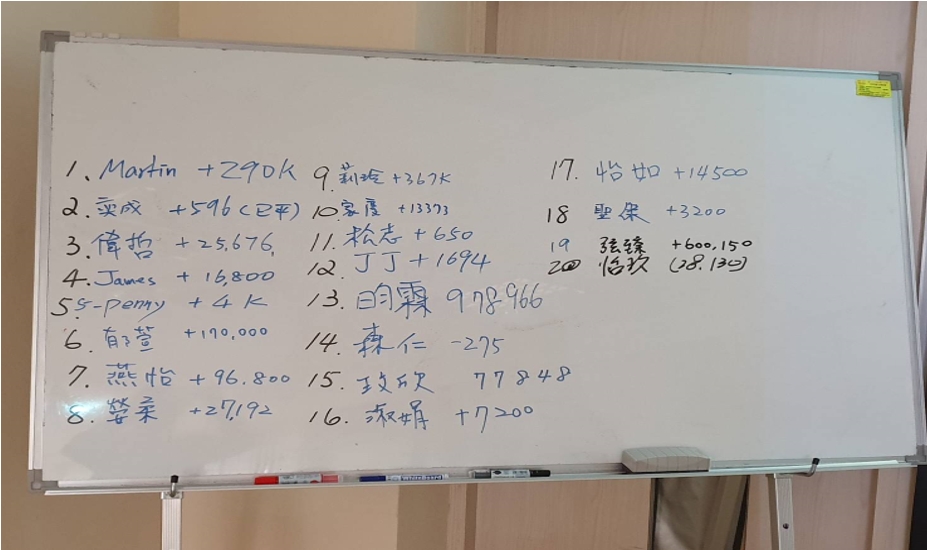 1. Martin +290K
2. 奕成 +596(已平)
3. 偉哲 +25,676
4. James + 16,800
5 s-penny + 4K
6. 郁萱 +170,000
7. 燕怡 +96.800
8. +27,192
9. 莉玲 +367K
10. 家慶 +13373
11. 松志 +650
12. 丁丁 +1694
13. 昀霖 978966
14. 森仁 -275
15. 玫欣 77848
16. 淑娟 +7200
17. 怡如 +14500
18 聖傑 +3200
19 弦臻 +600,150
20 怡玟 (28.130)
WhiteBoard